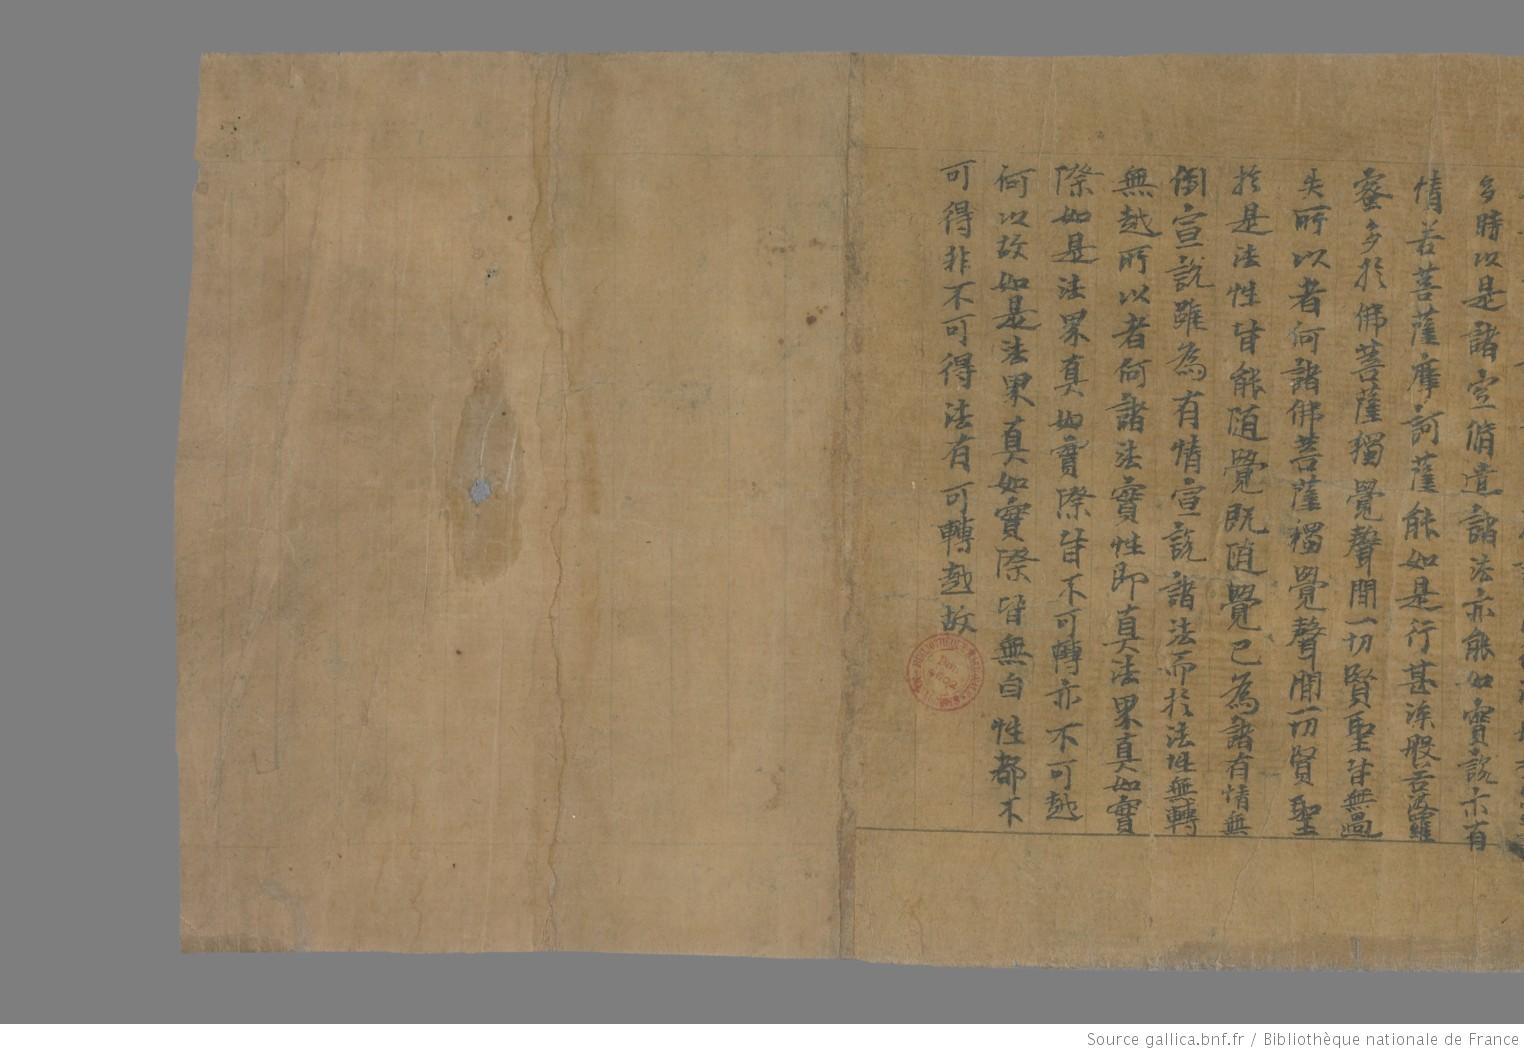 多時以是諸宣脩遣諸法亦能如實說亦有
情若菩薩摩訶薩能如是行甚深般若波羅
蜜多於佛菩薩獨覺聲聞一切賢聖皆無過
失所以者何諸佛菩薩獨覺聲聞一切賢聖
於是法性皆能隨覺既隨覺已為諸有情無
倒宣說雖為有情宣說諸法而於法性無轉
無越所以者何諸法實性即真法界真如實
際如是法界真如實際皆不可轉亦不可越
何以故如是法界真如實際皆無自性都不
可得非不可得法有可轉越故
Source gallica.bnf.fr / Bibliothèque nationale de France